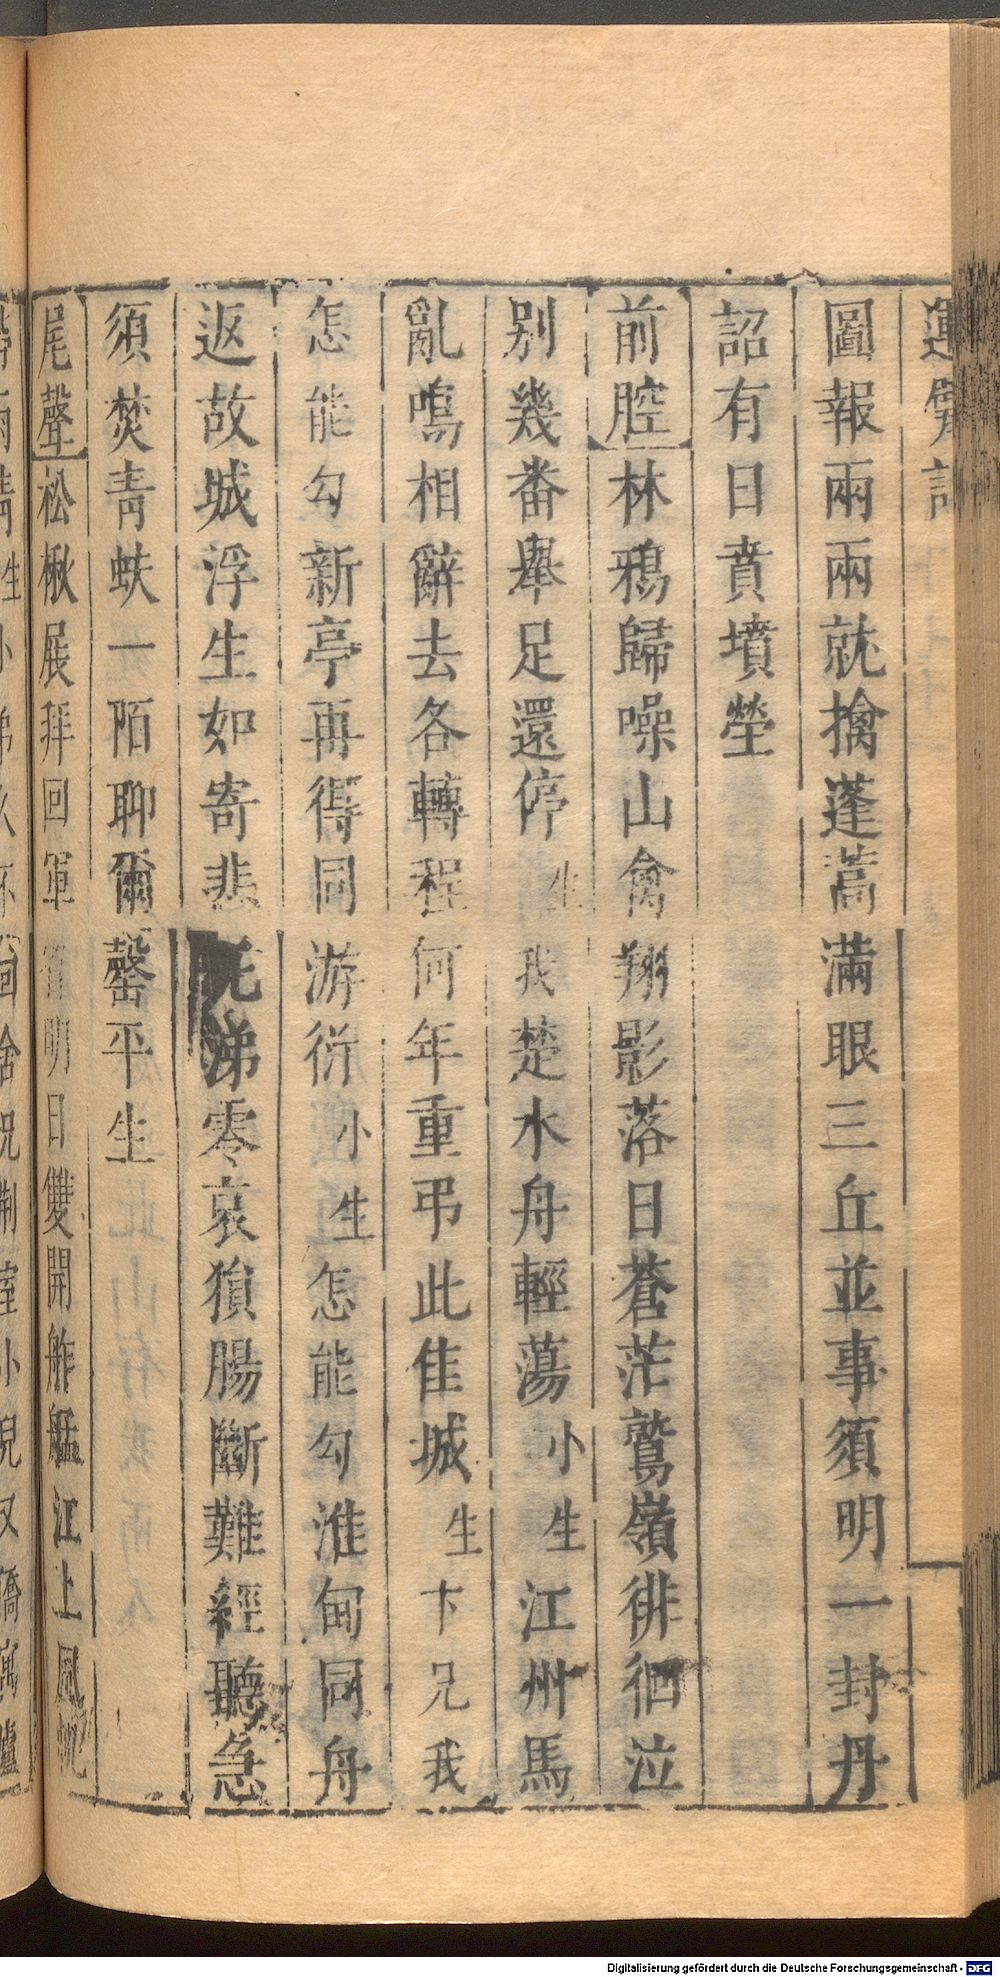 圖報兩兩就擒蓬蒿滿眼三丘並事須明一封丹
詔有日賁墳塋
前腔林鴉歸噪山禽翔影落日蒼茫鷲嶺徘徊泣
别幾番舉足還停生我楚水舟輕蕩小生江州馬
亂鳴相辭去各轉程何年重弔此佳城生卞兄我
怎能勾新亭再得同游衍小生怎能勾淮甸同舟
返故城浮生如寄悲 涕零哀猿腸斷難經聽急
須焚青蚨一陌聊爾罄平生
尾聲松楸展拜回軍 明日雙開舴艋江上風
Digitalisierung gefördert durch die Deutsche Forschungsgemeinschaft - DFG